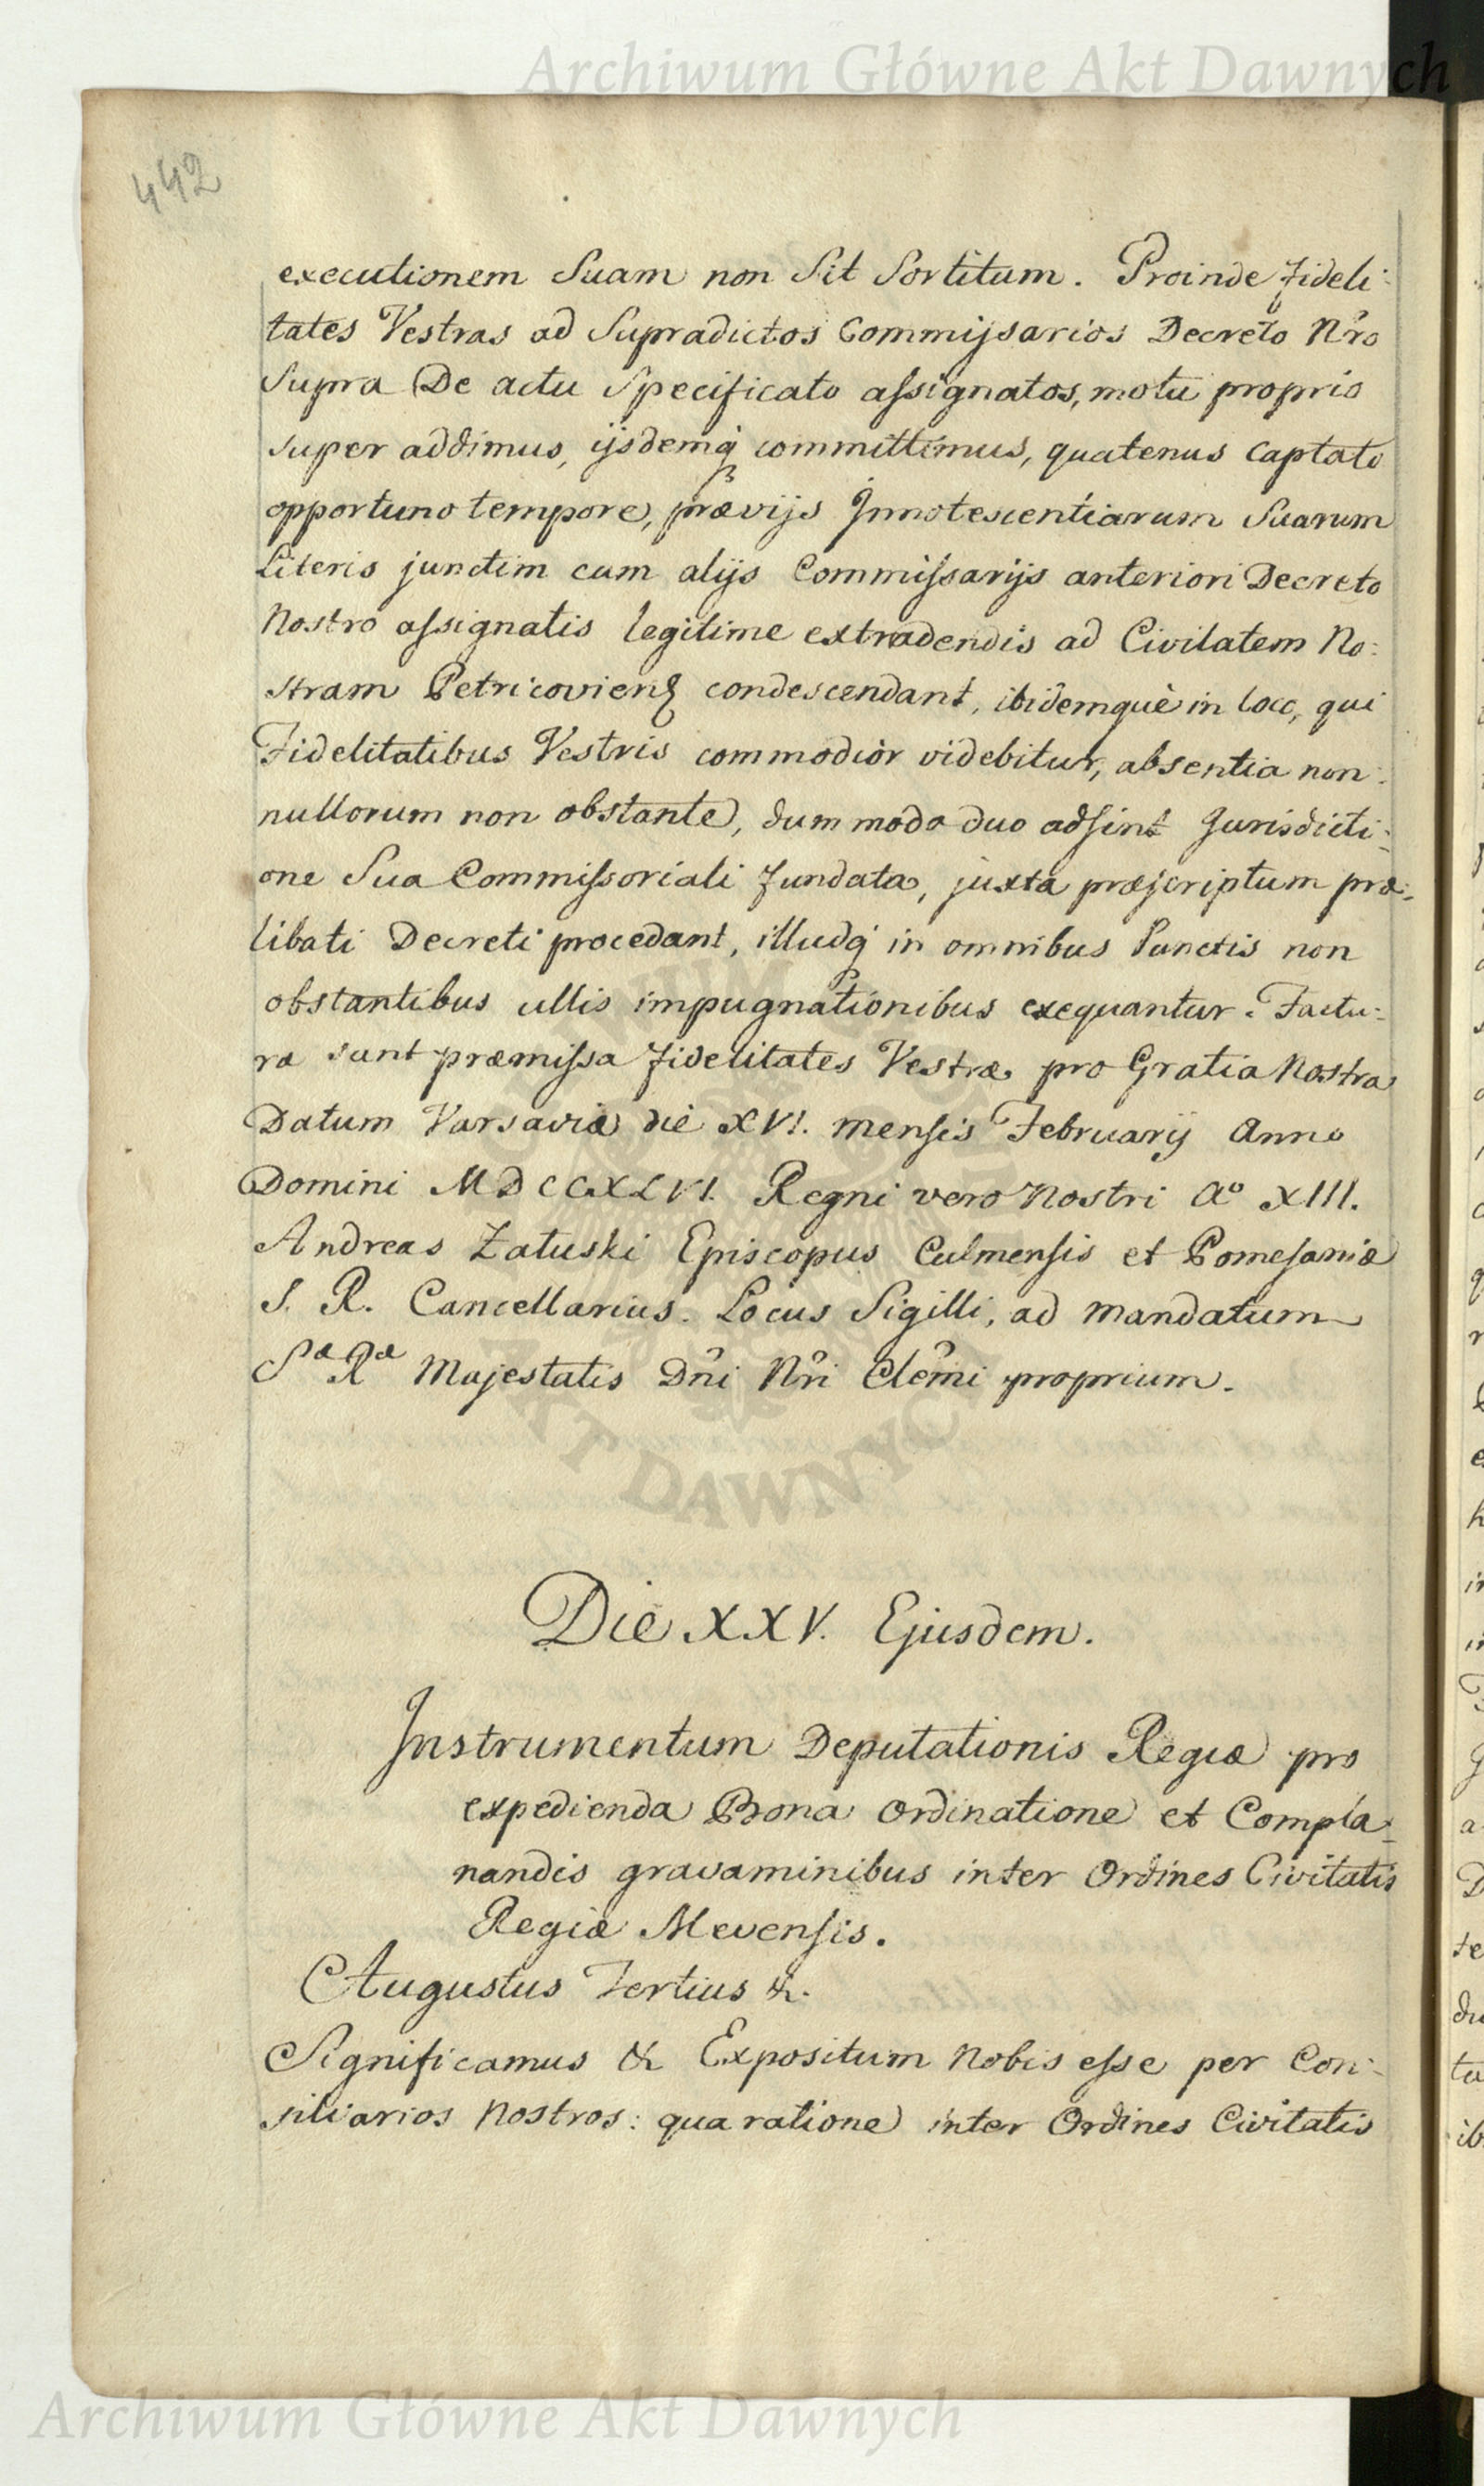 Archiwum Główne Akt Dawnych
442
executionem Suam non Sit Sortitum. Proinde fideli:
tates Vestras ad Supradictos Commissarios Decreto Nr̃o
Supra De actu Specificato assignatos, motu proprio
super addimus, ijsdemq́ committimus, quatenus captato
opportuno tempore, prævijs Innotescentiarum Suarum
Literis junctim cum alijs Commissarijs anteriori Decreto
Nostro assignatis legitime extradendis ad Civitatem No:
stram Petricovien̄ condescendant, ibidemquè in loco, qui
Fidelitatibus Vestris commodior videbitur, absentia non:
nullorum non obstante, dum modo duo adsint Jurisdicti:
one Sua Commissoriali fundata, juxta præscriptum præ:
libati Decreti procedant, illudq́ in omnibus Punctis non
obstantibus ullis impugnationibus exequantur. Factu:
ræ sunt præmissa fidelitates Vestræ pro Gratia Nostra
Datum Varsaviæ die XVI. mensis Februarij Anno
Domini MDCCXLVI. Regni vero Nostri Aº XIII.
Andreas Załuski Episcopus Culmensis et Pomesaniæ
S. R. Cancellarius. Locus Sigilli, ad mandatum
Sæ Ræ Majestatis Dñi Nr̃i Clem̃i proprium.
AKT DAWNYCH
Die XXV. Ejusdem.
Instrumentum Deputationis Regiæ pro
expedienda Bona Ordinatione et Compla:
nandis gravaminibus inter Ordines Civitatis
Regiæ Mevensis.
Augustus Tertius &.
Significamus & Expositum Nobis esse per Con:
siliarios Nostros: qua ratione inter Ordines Civitatis
Archiwum Główne Akt Dawnych